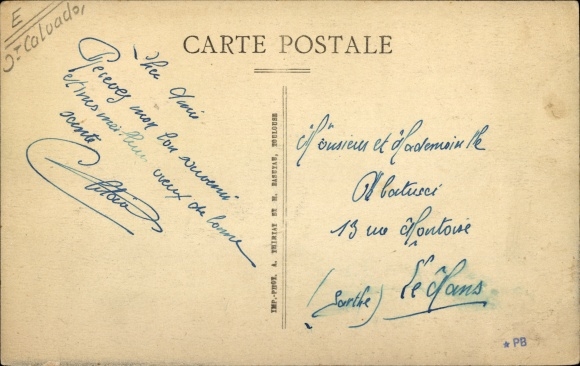 E
CARTE POSTALE
Cher Amis
Recevez mon bon souvenir
et mes meilleurs vœux de bonne
santé
IMP.-PHOT. A. THIRIAT ET M. BASUYAU, TOULOUSE
Monsieur et Mademoiselle
Abatucci
13 rue Montoise
Le Mans
(Sarthe)
★PB